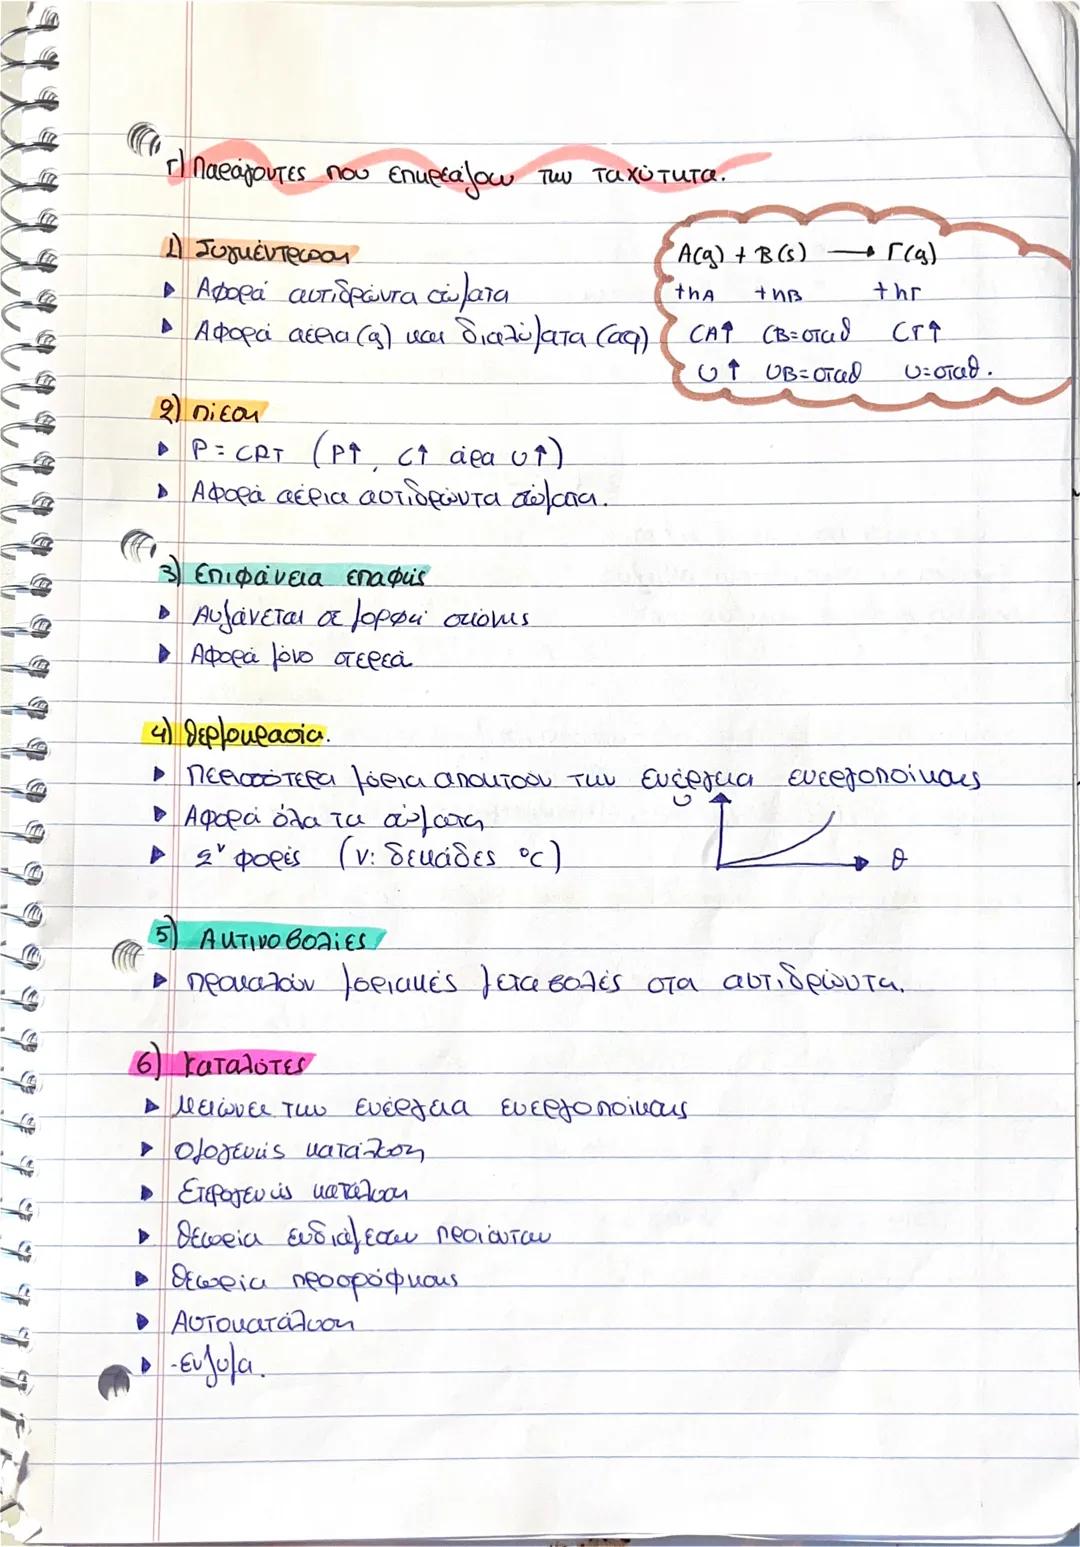 Γ) Παράγοντες που επηρεάζουν την ταχύτητα.
1) Συγκέντρωση
▶ Αφορά αντιδρώντα σώματα
▶ Αφορά αέρια (g) και διαλύματα (aq)
A(g) + B(s) → Γ(g)
+nA +nB +nΓ
CA↑ CB=σταθ CΓ↑
υ↑ υB=σταθ υ=σταθ.
2) Πίεση
▶ P = CRT (P↑, C↑ άρα υ↑)
▶ Αφορά αέρια αντιδρώντα σώματα.
3) Επιφάνεια επαφής
▶ Αυξάνεται σε μορφή σκόνης
▶ Αφορά μόνο στερεά
4) Θερμοκρασία.
▶ Περισσότερα μόρια αποκτούν την ενέργεια ενεργοποίησης
▶ Αφορά όλα τα σώματα
▶ 2ᵛ φορές (ν: δεκάδες °C)
υ
θ
5) Ακτινοβολίες
▶ Προκαλούν μοριακές μεταβολές στα αντιδρώντα.
6) Καταλύτες
▶ Μειώνει την ενέργεια ενεργοποίησης
▶ Ομογενής κατάλυση
▶ Ετερογενής κατάλυση
▶ Θεωρία ενδιάμεσων προϊόντων
▶ Θεωρία προσρόφησης
▶ Αυτοκατάλυση
▶ -Ενζυμα.